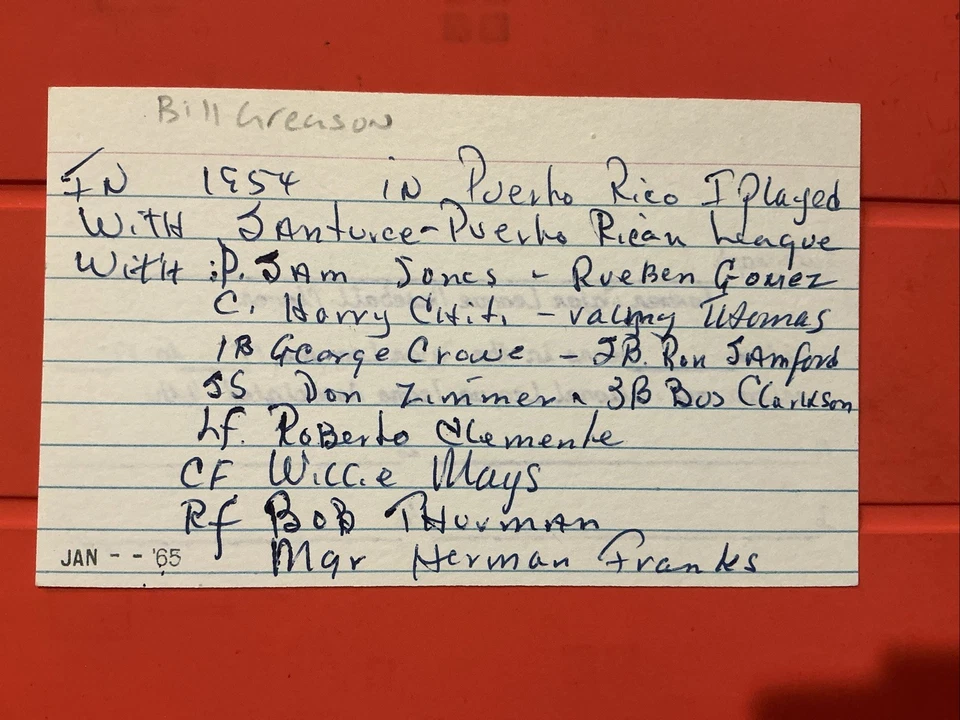 Bill Greason
IN 1954 in Puerto Rico I Played
With Santurce - Puerto Rican League
With : P. Sam Jones - RueBen Gomez
C. Harry Chiti - Valmy Thomas
1B George Crowe - 2B. Ron Samford
SS Don Zimmer - 3B Bus Clarkson
Lf. RoBerto Clemente
CF Willie Mays
Rf BoB Thurman
JAN - - '65 Mgr Herman Franks